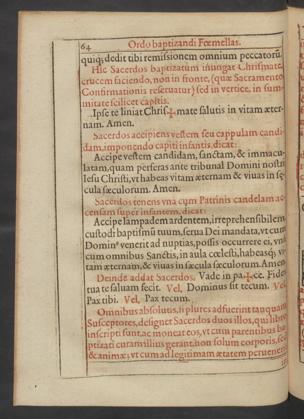 64 Ordo baptizandi Fœmellas.
quiq; dedit tibi remissionem omnium peccatorū.
Hîc Sacerdos baptizatum inungat Chrismate,
crucem faciendo, non in fronte, (quæ Sacramento
Confirmationis reseruatur) sed in vertice, in sum-
mitate scilicet capitis.
Ipse te liniat Chris✠mate salutis in vitam æter-
nam. Amen.
Sacerdos accipiens vestem seu cappulam candi-
dam, imponendo capiti infantis, dicat:
Accipe vestem candidam, sanctam, & immacu-
latam, quam perferas ante tribunal Domini nostri
Iesu Christi, vt habeas vitam æternam & viuas in sę-
cula sæculorum. Amen.
Sacerdos tenens vna cum Patrinis candelam ac-
censam super infantem, dicat:
Accipe lampadem ardentem, irreprehensibilem
custodi baptismū tuum, serua Dei mandata, vt cum
Dominꝰ venerit ad nuptias, possis occurrere ei, vnà
cum omnibus Sanctis, in aula cœlesti, habeasq; vi-
tam æternam, & viuas in sæcula sæculorum. Amen.
Deinde addat Sacerdos. Vade in pa✠ce. Fides
tua te saluam fecit. Vel, Dominus sit tecum. Vel,
Pax tibi. Vel, Pax tecum.
Omnibus absolutis, si plures adfuerint tanquam
Susceptores, designet Sacerdos duos illos, qui libro
inscripti sunt, ac moneat eos, vt cum parentibus ba-
ptizati curam illius gerant, non solum corporis, sed
& animæ; vt cum ad legitimam ætatem peruenerit